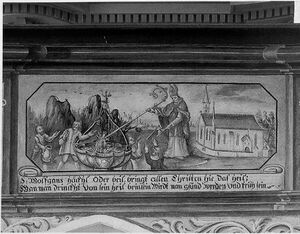 S: Wolfgangs häckhl Oder beil, bringt allen Christen hie Das heil;
Wan man drinckht Von sein heil brünlein Wirdt man gsund werden Und früh sein